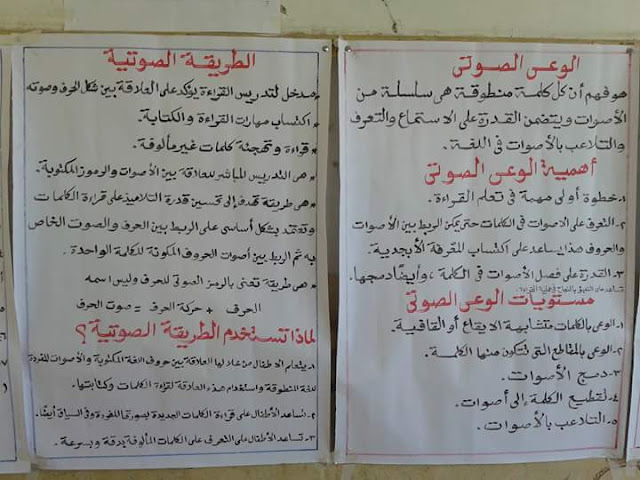 الوعى الصوتى
هو فهم أن كل كلمة منطوقة هى سلسلة من
الأصوات ويتضمن القدرة على الاستماع والتعرف
والتلاعب بالأصوات فى اللغة.
أهمية الوعى الصوتى
١- خطوة أولى مهمة فى تعلم القراءة.
٢- التعرف على الاصوات فى الكلمات حتى يمكن الربط بين الأصوات
والحروف هذا يساعد على اكتساب المعرفة الأبجدية.
٣- القدرة على فصل الأصوات فى الكلمة ، وأيضًا دمجها.
تساعد على التنبؤ بالنجاح فى عملية القراءة
مستويات الوعى الصوتى
١- الوعى بالكلمات متشابهة الايقاع أو القافية.
٢- الوعى بالمقاطع التى تتكون منها الكلمة.
٣- دمج الأصوات.
٤- تقطيع الكلمة إلى أصوات.
٥- التلاعب بالأصوات.
الطريقة الصوتية
* مدخل لتدريس القراءة يؤكد على العلاقة بين شكل الحرف وصوته
* اكتساب مهارات القراءة والكتابة.
* قراءة وتهجئة كلمات غير مألوفة.
* هى التدريس المباشر للعلاقة بين الأصوات والرموز المكتوبة.
* هى طريقة تهدف إلى تحسين قدرة التلاميذ على قراءة الكلمات
وتعتمد بشكل أساسى على الربط بين الحرف والصوت الخاص
به ثم الربط بين أصوات الحروف المكونة للكلمة الواحدة.
* هى طريقة تعنى بالرمز الصوتى للحرف وليس اسمه
الحرف + حركة الحرف = صوت الحرف
لماذا تستخدم الطريقة الصوتية؟
١- يتعلم الاطفال من خلالها العلاقة بين حروف اللغة المكتوبة والأصوات المفردة
للغة المنطوقة واستخدام هذه العلاقة لقراءة الكلمات وكتابتها.
٢- تساعد الأطفال على قراءة الكلمات الجديدة بصورتها المفردة وفى السياق أيضًا.
٣- تساعد الأطفال على التعرف على الكلمات المألوفة بدقة وبسرعة.